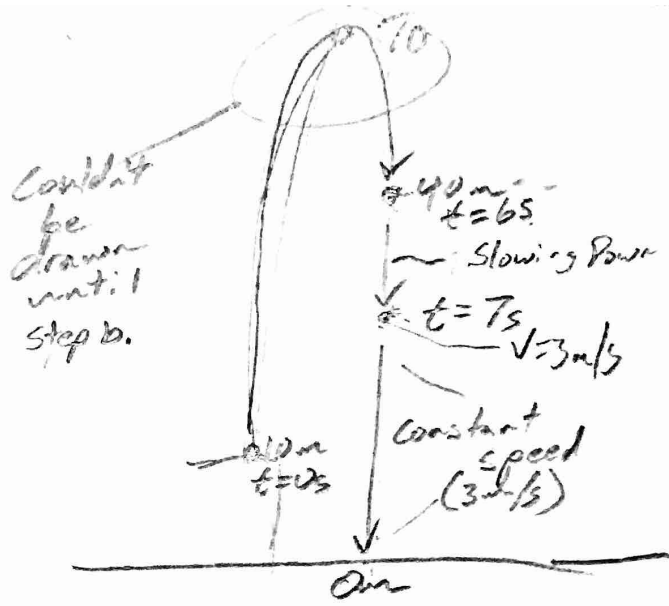 70
Couldn't
be
drawn
until
step b.
40m
t=6s
Slowing Down
t=7s
V=3m/s
constant
speed
(3m/s)
t=0s
0m